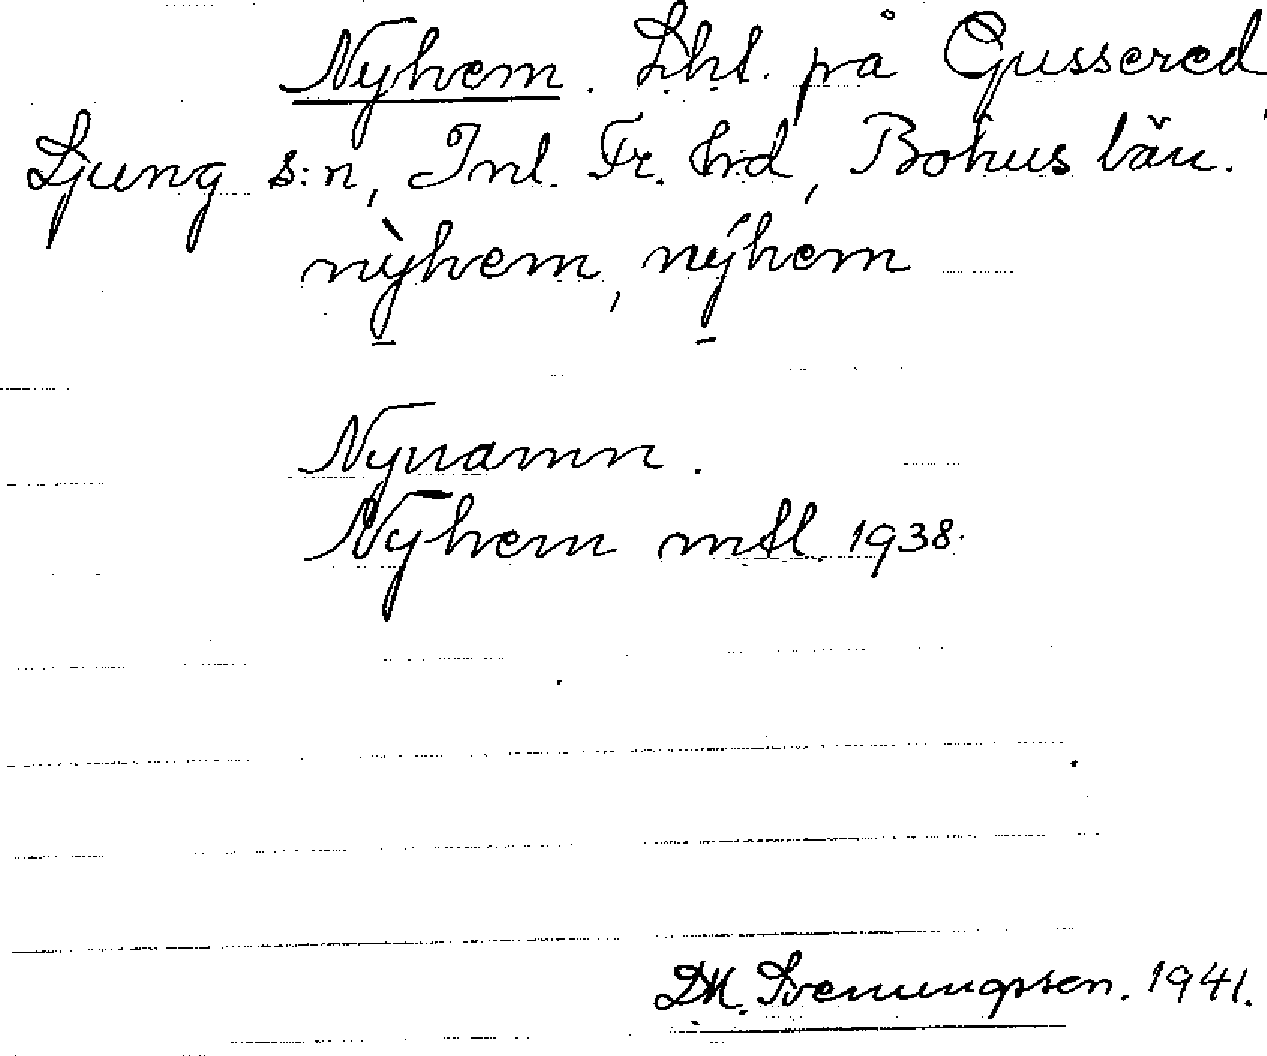 Nyhem. Lht. på Gussered,
Ljung s:n, Inl. Fr. hrd, Bohus län.
nỳhem, nýhem
Nynamn.
Nyhem mtl. 1938.
D.M. Svenungsson. 1941.